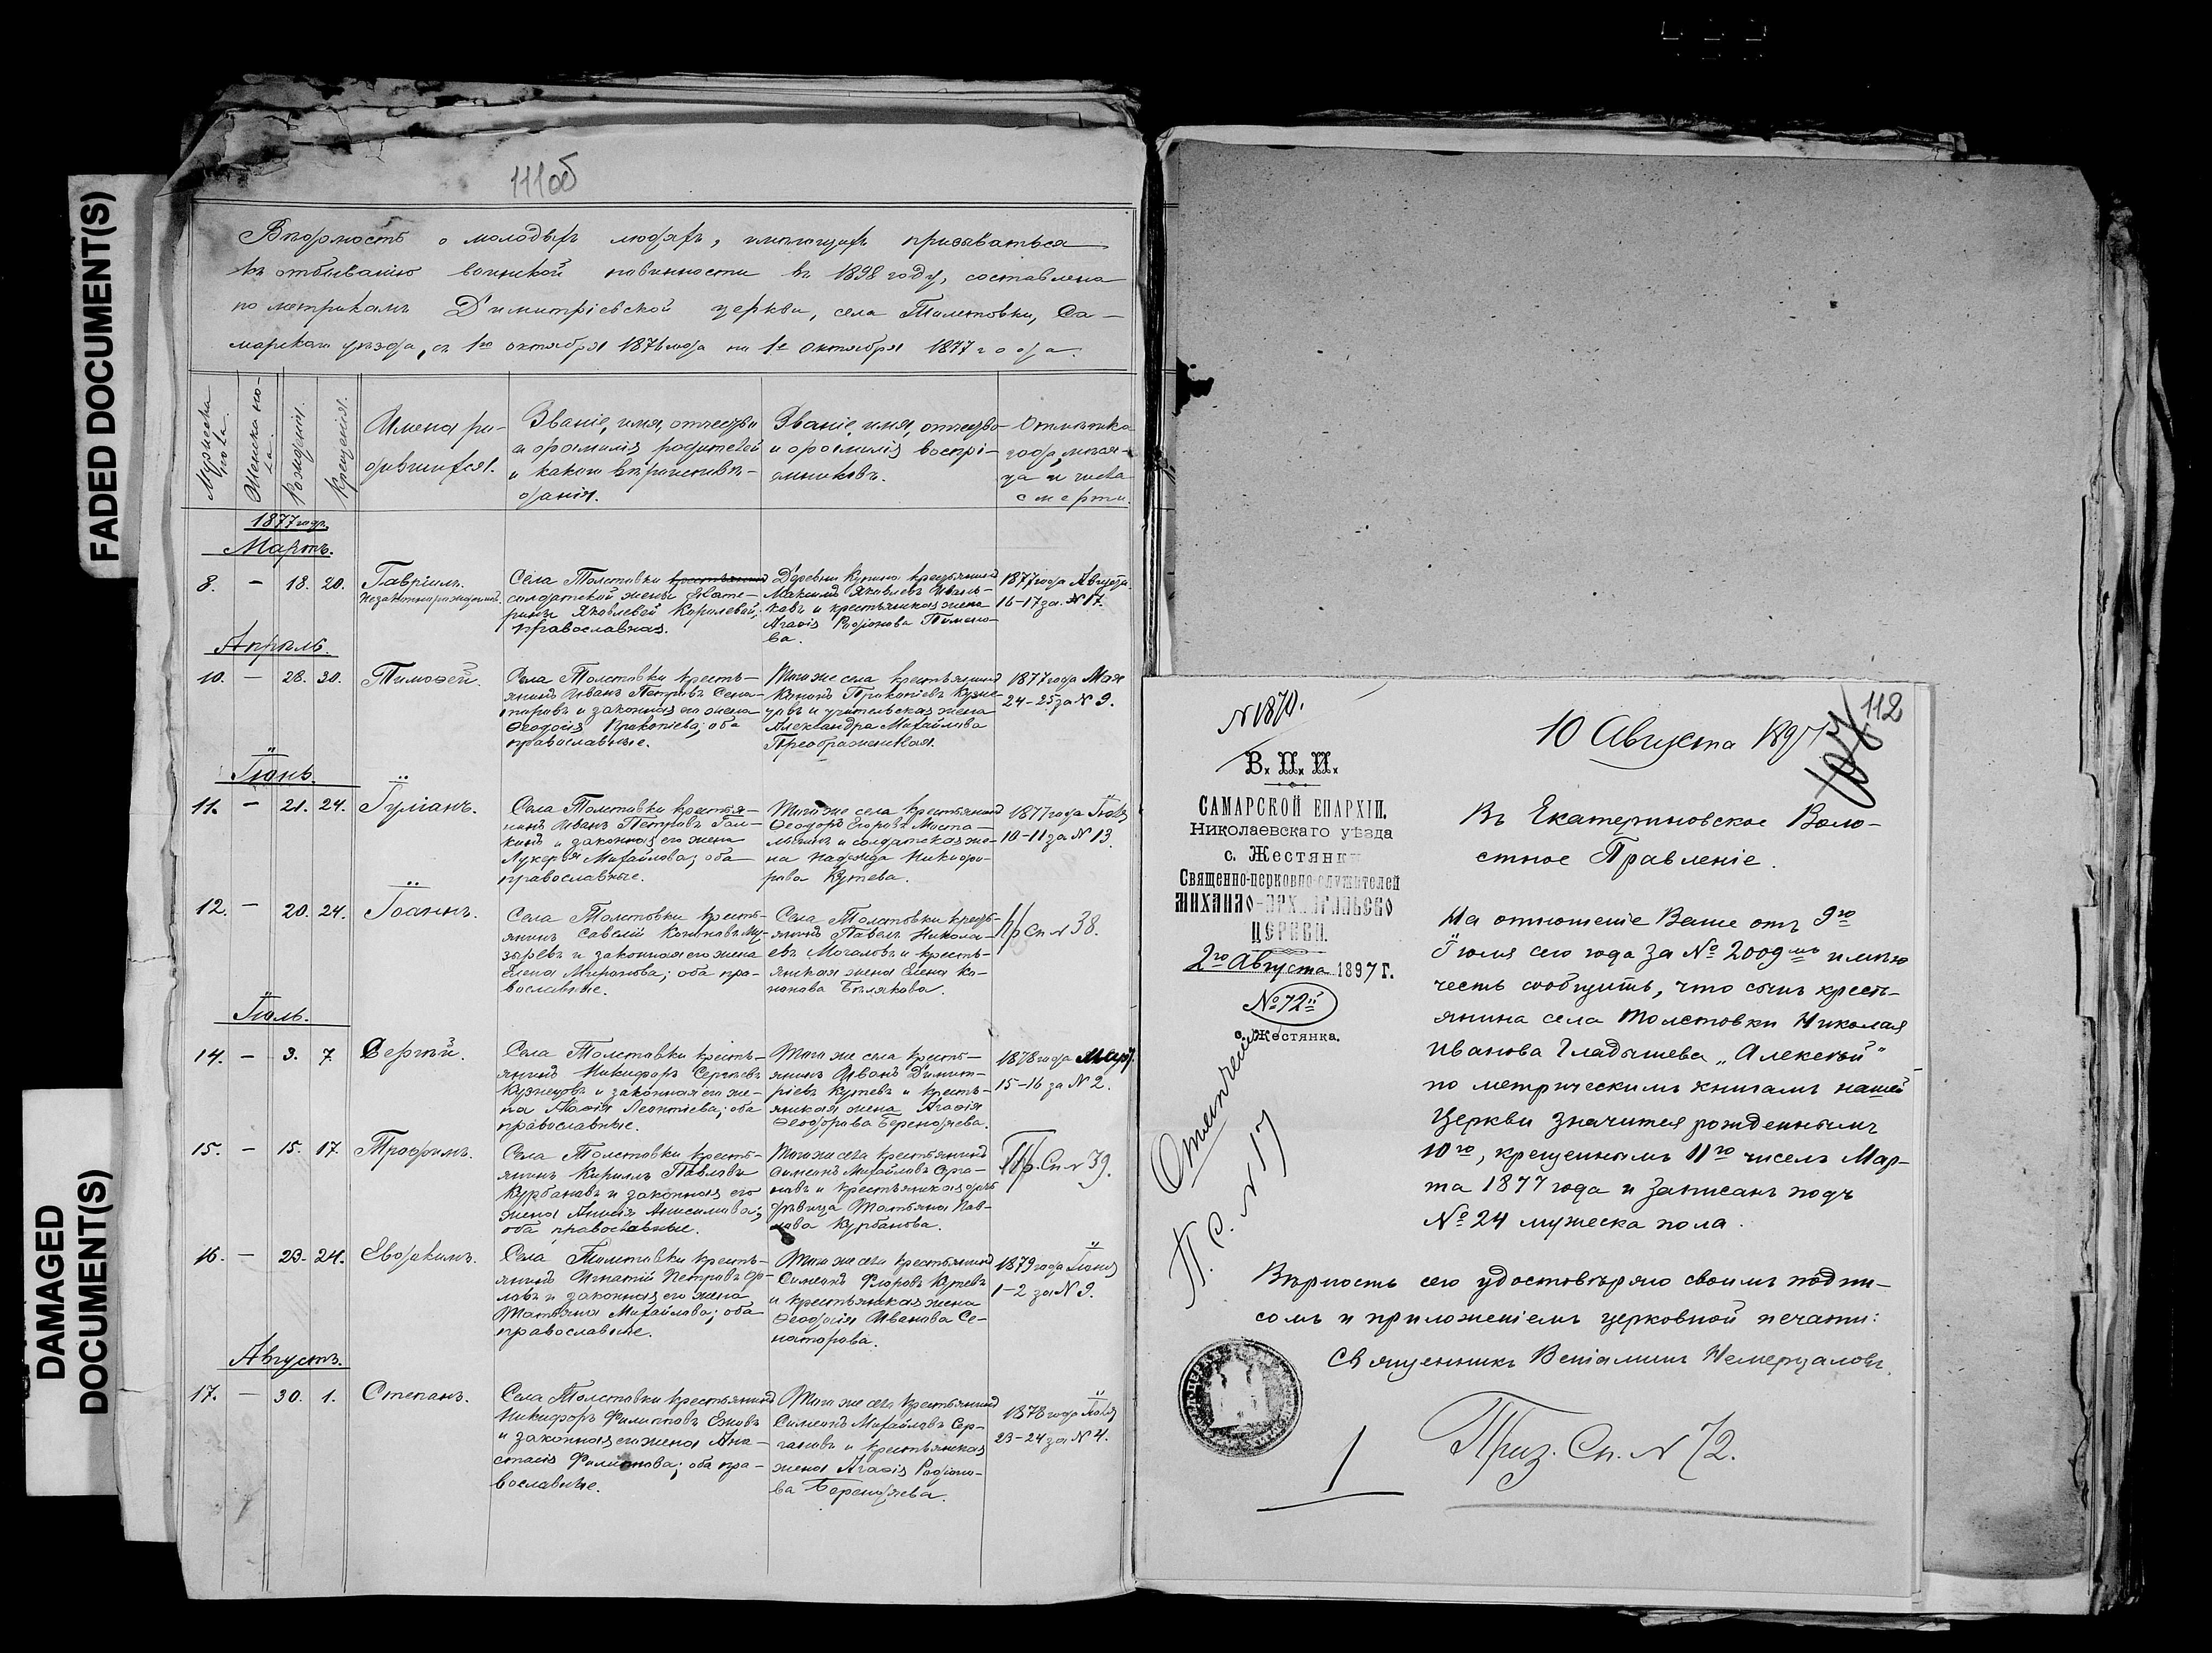 FADED DOCUMENT(S)
DAMAGED
DOCUMENT(S)
111об
Вѣдомость о молодыхъ людяхъ, имѣющихъ призываться
къ отбыванію воинской повинности въ 1898 году, составлена
по метрикамъ Димитріевской церкви, села Толстовки, Са-
марскаго уѣзда, съ 1го октября 1876 года по 1е Октября 1877 года.
Мужеска пола.
Женска по-
ла.
Рожденія.
Крещенія.
Имена ро-
дившихся.
Званіе, имя, отчество
и фамилія родителей
и какого вѣроисповѣ-
данія.
Званіе, имя, отчество
и фамилія воспрі-
емниковъ.
Отмѣтка
года, мѣся-
ца и числа
смерти.
1877 годъ.
Мартъ.
8. – 18. 20.
Гавріилъ.
Незаконнорожденный.
Села Толстовки крестьянина
солдатской жены Екате-
рины Яковлевой Королевой;
православная.
Деревни Купина крестьянинъ
Максимъ Яковлевъ Иваль-
ковъ и крестьянская жена
Агафія Родіонова Пимено-
ва.
1877 года Августа
16-17 за № 17.
Апрѣль.
10. – 28. 30.
Тимофей.
Села Толстовки кресть-
янинъ Иванъ Петровъ Сена-
торовъ и законная его жена
Феодосія Прокопіева; оба
православные.
Того же села крестьянинъ
Кононъ Прокопіевъ Кузне-
цовъ и учительская жена
Александра Михайлова
Преображенская.
1877 года Мая
24-25 за № 9.
Іюнь.
11. – 21. 24.
Іуліанъ.
Села Толстовки крестья-
нинъ Иванъ Петровъ Гал-
кинъ и законная его жена
Лукерья Михайлова; оба
православные.
Того же села крестьянинъ
Феодоръ Егоровъ
и солдатская же-
на Надежда Никифо-
рова Кутева.
1877 года Іюля
10-11 за № 13.
12. – 20. 24.
Іоаннъ.
Села Толстовки кресть-
янинъ Савелій Кононовъ Му-
зыревъ и законная его жена
Елена Миронова; оба пра-
вославные.
Села Толстовки кресть-
янинъ Павелъ Никола-
евъ Мочаловъ и кресть-
янская жена Елена Ко-
нонова Бѣлякова.
Пр Сп № 38.
Іюль.
14. – 3. 7.
Сергѣй.
Села Толстовки кресть-
янинъ Никифоръ Сергѣевъ
Кузнецовъ и законная его же-
на Леонтіева; оба
православные.
Того же села кресть-
янинъ Иванъ Димит-
ріевъ Кутевъ и кресть-
янская жена Агафія
Феодорова Береднева.
1878 года Март.
15-16 за № 2.
15. – 15. 17.
Трофимъ.
Села Толстовки кресть-
янинъ Кириллъ Павловъ
Курбановъ и законная его
жена Анисія Анисимова;
оба православные.
Того же села крестьянинъ
Симеонъ Михайловъ Серга-
новъ и крестьянская дочь
дѣвица Татьяна Пав-
лова Курбанова.
Пр. Сп № 39.
16. – 23. 24.
Евдокимъ.
Села Толстовки кресть-
янинъ Игнатій Петровъ Ор-
ловъ и законная его жена
Татьяна Михайлова; оба
православные.
Того же села крестьянинъ
Симеонъ Флоровъ Кутевъ
и крестьянская жена
Феодосія Иванова Се-
наторова.
1879 года Іюня
1-2 за № 9.
Августъ.
17. – 30. 1.
Степанъ.
Села Толстовки крестьянинъ
Никифоръ Филипповъ Ежовъ
и законная его жена Ана-
стасія Филиппова; оба пра-
вославные.
Того же села крестьянинъ
Симеонъ Михайловъ Сер-
гановъ и крестьянская
жена Агафія Родіоно-
ва Береднева.
1878 года Іюля
23-24 за № 4.
112
10 Августа 1897
№ 1870.
В. П. И.
САМАРСКОЙ ЕПАРХІИ.
Николаевскаго уѣзда
с. Жестянки
Священно-церковно-служителей
МИХАИЛО-АРХАНГЕЛЬСКО
ЦЕРКВИ.
2го Августа 1897 г.
№ 72й
с. Жестянка.
Отмѣчено
П. С. № 17
Въ Екатериновское Воло-
стное Правленіе.
На отношеніе Ваше отъ 9го
Іюля сего года за № 2009мъ имѣю
честь сообщить, что сынъ кресть-
янина села Толстовки Николая
Иванова Гладышева „Алексѣй"
по метрическимъ книгамъ нашей
Церкви значится рожденнымъ
10го, крещеннымъ 11го чиселъ Мар-
та 1877 года и записанъ подъ
№ 24 мужеска пола.
Вѣрность сего удостовѣряю своимъ подпи-
сомъ и приложеніемъ церковной печати:
Священникъ Веніаминъ Немерцаловъ.
1
Приз. Сп. № 72.